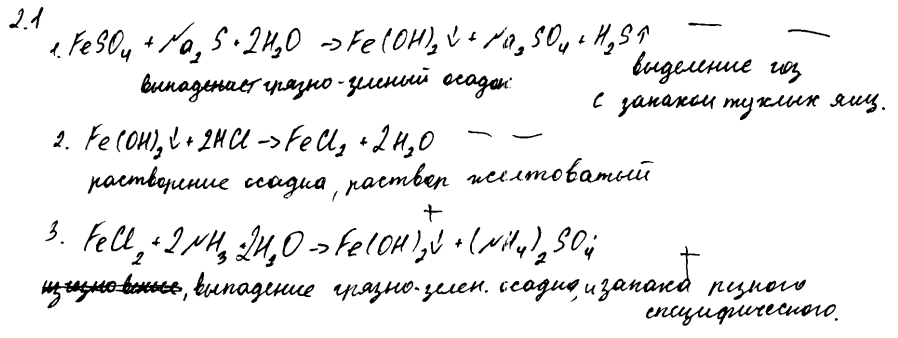 2.1
1. FeSO₄ + Na₂S + 2H₂O → Fe(OH)₂↓ + Na₂SO₄ + H₂S↑ — —
выпадает грязно-зеленый осадок
выделение газ
с запахом тухлых яиц.
2. Fe(OH)₂↓ + 2HCl → FeCl₂ + 2H₂O — —
растворение осадка, раствор желтоватый
+
3. FeCl₂ + 2NH₃·2H₂O → Fe(OH)₂↓ + (NH₄)₂SO₄
+
, выпадение грязно-зелен. осадка, и запаха резного
специфического.